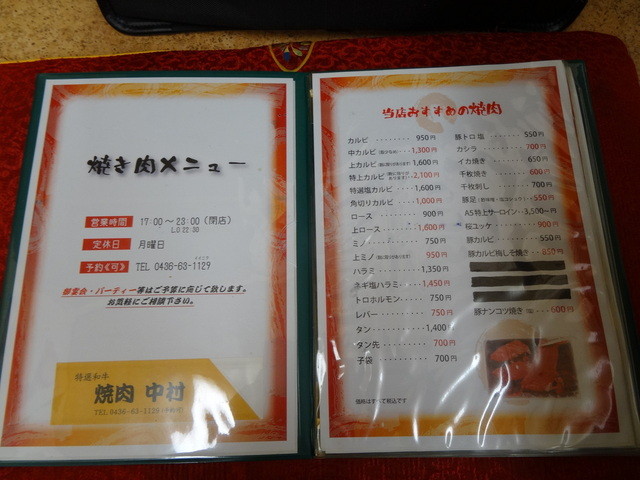 焼き肉メニュー
営業時間 17:00～23:00（閉店）
L.O 22:30
定休日 月曜日
予約《可》 TEL 0436-63-1129
御宴会・パーティー等はご予算に応じて致します。
お気軽にご相談下さい。
特選和牛
焼肉 中村
TEL.0436-63-1129
当店おすすめの焼肉
カルビ ········ 950円
中カルビ 1,300円
上カルビ 1,600円
特上カルビ 2,100円
特選塩カルビ ···· 1,600円
角切りカルビ ···· 1,000円
ロース ········ 900円
上ロース ······ 1,600円
ミノ ········ 750円
上ミノ 950円
ハラミ ······· 1,350円
ネギ塩ハラミ ···· 1,450円
トロホルモン ···· 750円
レバー ······· 750円
タン ········ 1,400円
タン先 ······· 700円
子袋 ········ 700円
価格はすべて税込です
豚トロ塩 ······ 550円
カシラ ······· 700円
イカ焼き ······ 650円
千枚焼き ······ 600円
千枚刺し ······ 700円
豚足 550円
A5特上サーロイン ·· 3,500円～
桜ユッケ ······ 900円
豚カルビ ······ 550円
豚カルビ梅しそ焼き ·· 850円
豚ナンコツ焼き 600円